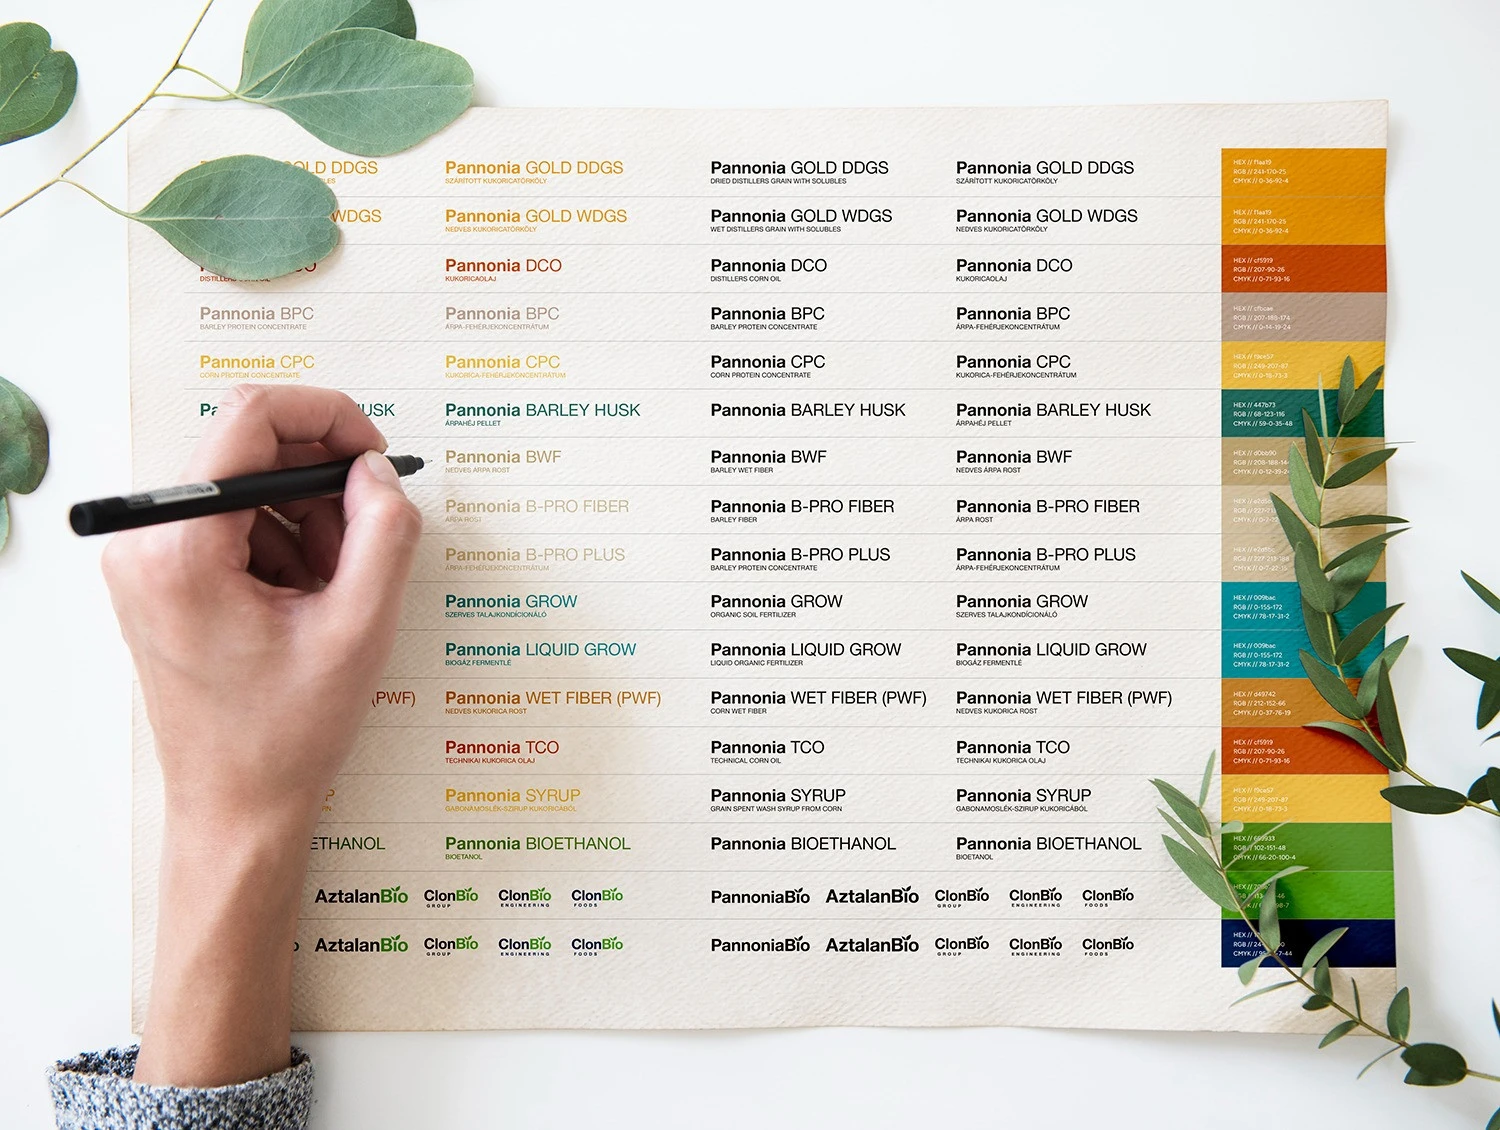 OLD DDGS Pannonia GOLD DDGS Pannonia GOLD DDGS Pannonia GOLD DDGS HEX // f1aa19
SZÁRÍTOTT KUKORICATÖRKÖLY DRIED DISTILLERS GRAIN WITH SOLUBLES SZÁRÍTOTT KUKORICATÖRKÖLY RGB // 241-170-25
CMYK // 0-36-92-4
WDGS Pannonia GOLD WDGS Pannonia GOLD WDGS Pannonia GOLD WDGS HEX // f1aa19
NEDVES KUKORICATÖRKÖLY WET DISTILLERS GRAIN WITH SOLUBLES NEDVES KUKORICATÖRKÖLY RGB // 241-170-25
CMYK // 0-36-92-4
Pannonia DCO Pannonia DCO Pannonia DCO HEX // cf5919
KUKORICAOLAJ DISTILLERS CORN OIL KUKORICAOLAJ RGB // 207-90-26
CMYK // 0-71-93-16
Pannonia BPC Pannonia BPC Pannonia BPC Pannonia BPC HEX // cfbcae
BARLEY PROTEIN CONCENTRATE ÁRPA-FEHÉRJEKONCENTRÁTUM BARLEY PROTEIN CONCENTRATE ÁRPA-FEHÉRJEKONCENTRÁTUM RGB // 207-188-174
CMYK // 0-14-19-24
Pannonia CPC Pannonia CPC Pannonia CPC Pannonia CPC HEX // f9ce57
CORN PROTEIN CONCENTRATE KUKORICA-FEHÉRJEKONCENTRÁTUM CORN PROTEIN CONCENTRATE KUKORICA-FEHÉRJEKONCENTRÁTUM RGB // 249-207-87
CMYK // 0-18-73-3
Pa HUSK Pannonia BARLEY HUSK Pannonia BARLEY HUSK Pannonia BARLEY HUSK HEX // 447b73
ÁRPAHÉJ PELLET ÁRPAHÉJ PELLET RGB // 68-123-116
CMYK // 59-0-35-48
Pannonia BWF Pannonia BWF Pannonia BWF HEX // d0bb90
NEDVES ÁRPA ROST BARLEY WET FIBER NEDVES ÁRPA ROST RGB // 208-188-14
CMYK // 0-12-39-2
Pannonia B-PRO FIBER Pannonia B-PRO FIBER Pannonia B-PRO FIBER
ÁRPA ROST BARLEY FIBER ÁRPA ROST
Pannonia B-PRO PLUS Pannonia B-PRO PLUS Pannonia B-PRO PLUS
ÁRPA-FEHÉRJEKONCENTRÁTUM BARLEY PROTEIN CONCENTRATE ÁRPA-FEHÉRJEKONCENTRÁTUM
Pannonia GROW Pannonia GROW Pannonia GROW HEX // 009bac
SZERVES TALAJKONDÍCIONÁLÓ ORGANIC SOIL FERTILIZER SZERVES TALAJKONDÍCIONÁLÓ RGB // 0-155-172
CMYK // 78-17-31-2
Pannonia LIQUID GROW Pannonia LIQUID GROW Pannonia LIQUID GROW HEX // 009bac
BIOGÁZ FERMENTLÉ LIQUID ORGANIC FERTILIZER BIOGÁZ FERMENTLÉ RGB // 0-155-172
CMYK // 78-17-31-2
(PWF) Pannonia WET FIBER (PWF) Pannonia WET FIBER (PWF) Pannonia WET FIBER (PWF) HEX // d49742
NEDVES KUKORICA ROST CORN WET FIBER NEDVES KUKORICA ROST RGB // 212-152-66
CMYK // 0-37-76-19
Pannonia TCO Pannonia TCO Pannonia TCO HEX // cf5919
TECHNIKAI KUKORICA OLAJ TECHNICAL CORN OIL TECHNIKAI KUKORICA OLAJ RGB // 207-90-26
CMYK // 0-71-93-16
Pannonia SYRUP Pannonia SYRUP Pannonia SYRUP HEX // f9ce57
GABONAMOSLÉK-SZIRUP KUKORICÁBÓL GRAIN SPENT WASH SYRUP FROM CORN GABONAMOSLÉK-SZIRUP KUKORICÁBÓL RGB // 249-207-87
CMYK // 0-18-73-3
ETHANOL Pannonia BIOETHANOL Pannonia BIOETHANOL Pannonia BIOETHANOL HEX // 669933
BIOETANOL BIOETANOL RGB // 102-151-48
CMYK // 66-20-100-4
AztalanBio ClonBio ClonBio ClonBio PannoniaBio AztalanBio ClonBio ClonBio ClonBio
GROUP ENGINEERING FOODS GROUP ENGINEERING FOODS
AztalanBio ClonBio ClonBio ClonBio PannoniaBio AztalanBio ClonBio ClonBio ClonBio
GROUP ENGINEERING FOODS GROUP ENGINEERING FOODS